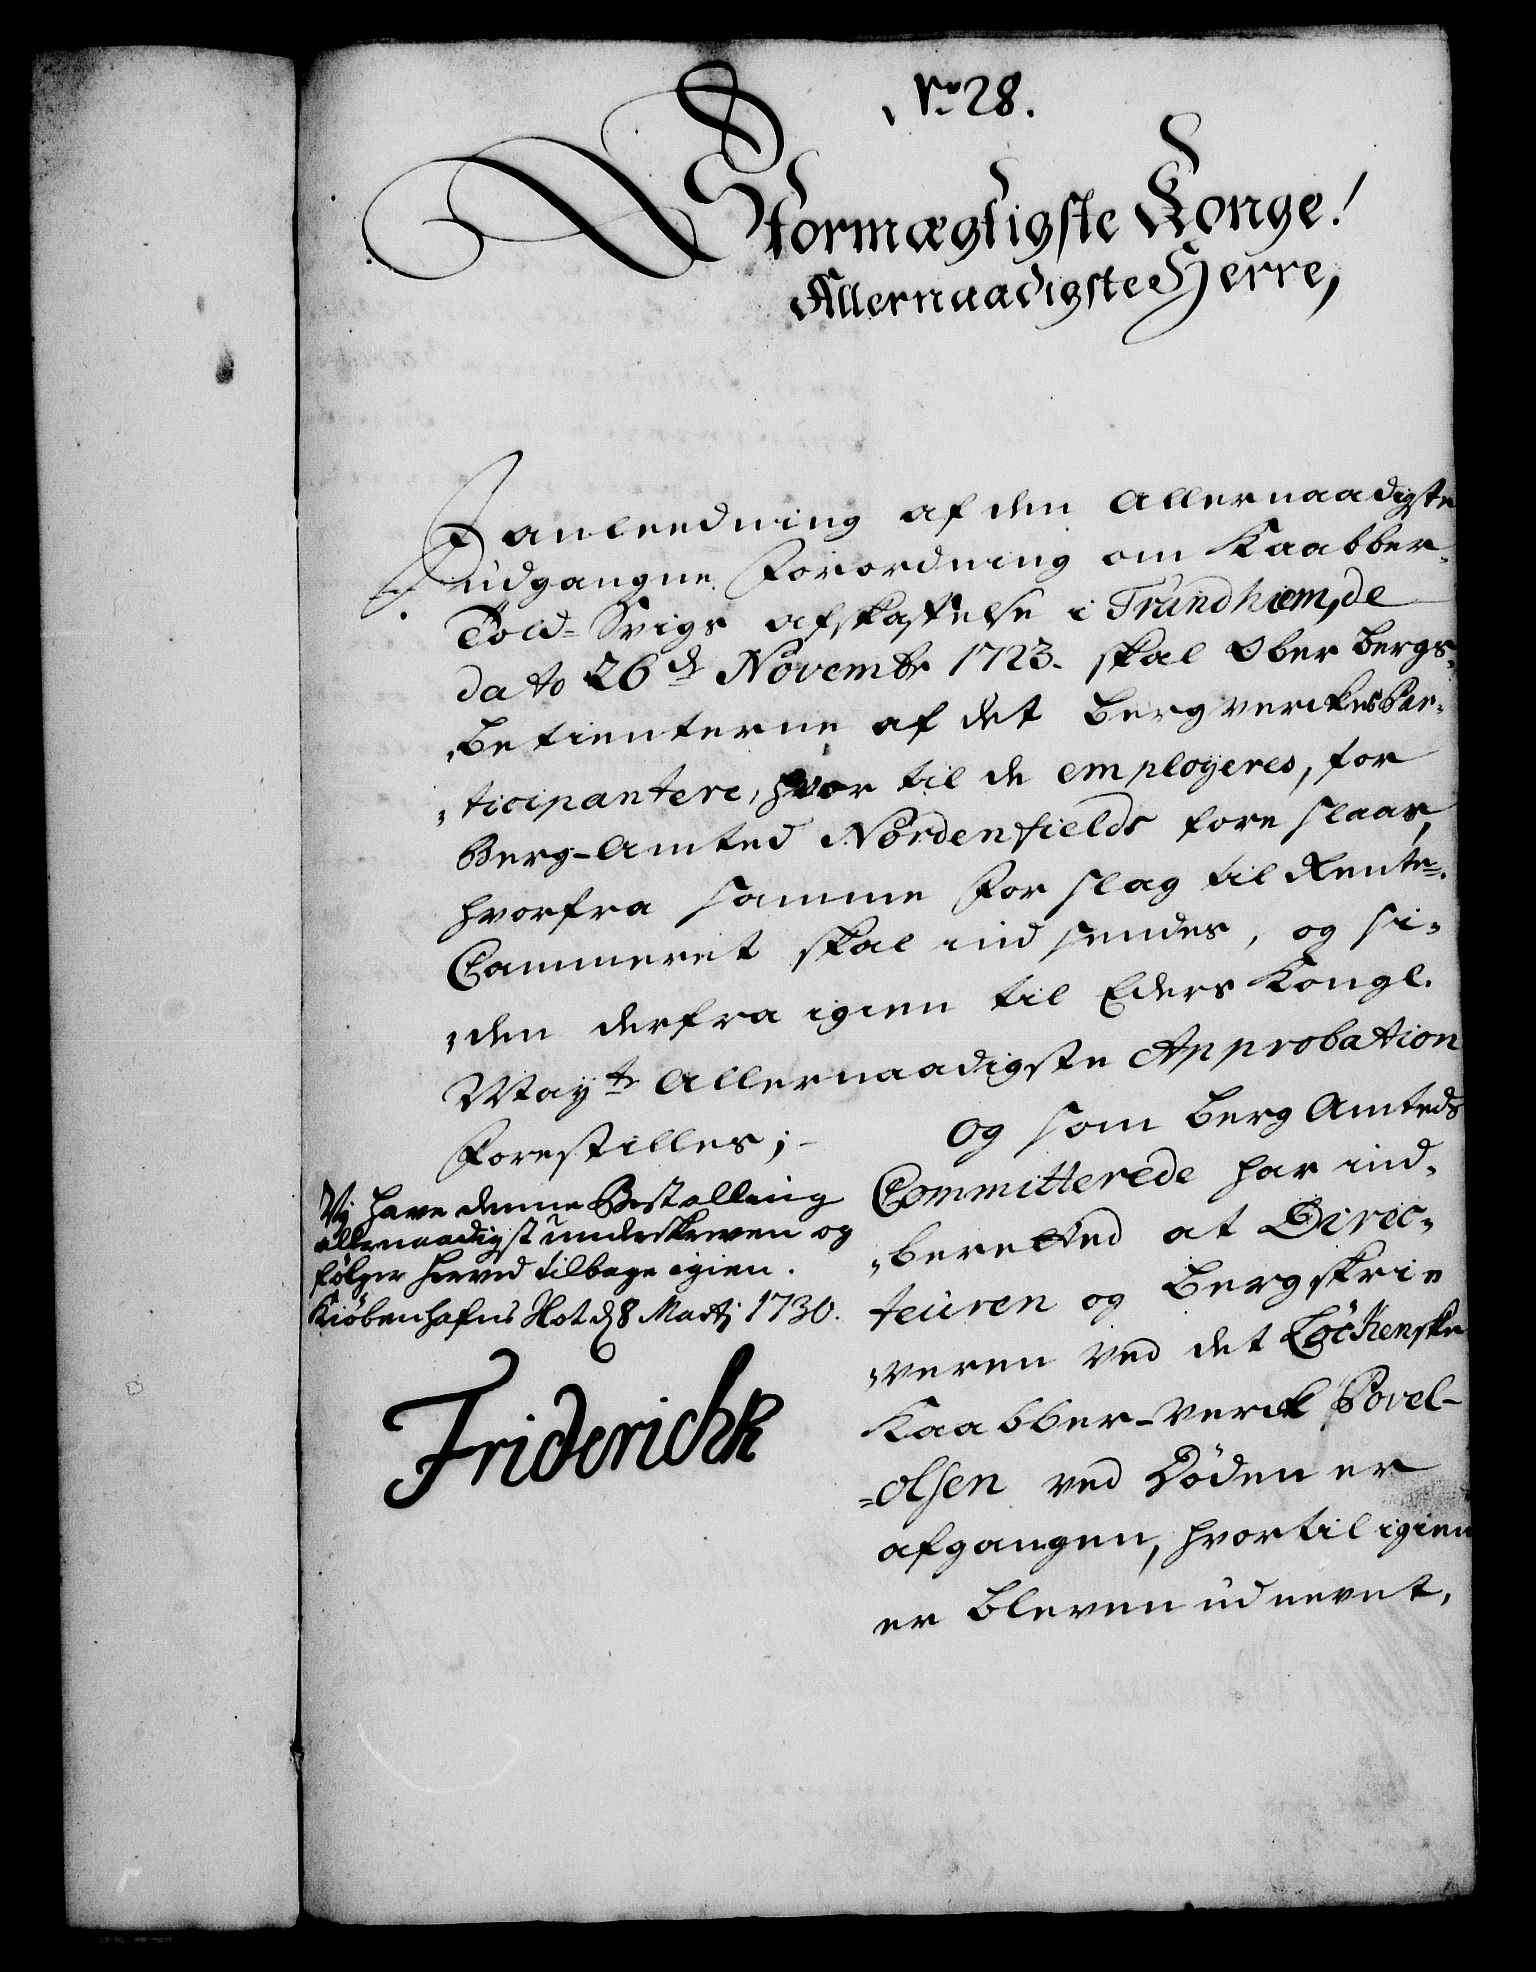 No 28.
Stormægtigste Konge!
Allernaadigste Herre,
I anleedning af den allernaadigste
udgangne Forordning om Kaabber-
Told-Svigs afskaffelse i Trundhiem, de
dato 26de Novembr 1723. skal Ober bergs-
betienterne af det bergverckes Par-
ticipantere, hvor til de employeres, for
Berg-Amted Nordenfields fore slaas,
hvorfra samme For slag til Rente-
Cammeret skal ind sendes, og si-
den derfra igien til Eders Kongl.
Mayts allernaadigste Approbation
Forestilles;-
Og som berg Amteds
Committerede har ind-
beretted at Direc-
teuren og bergskri-
veren ved det Löckenske
Kaabber-verck Povel-
olsen ved Döden er
afgangen, hvortil igien
er bleven udnevnt,
Vj have denne Bestalling
allernaadigst underskreven og
fölger herved tilbage igien.
Kiöbenhafns Slot d 8 Martj 1730.
Friderich R